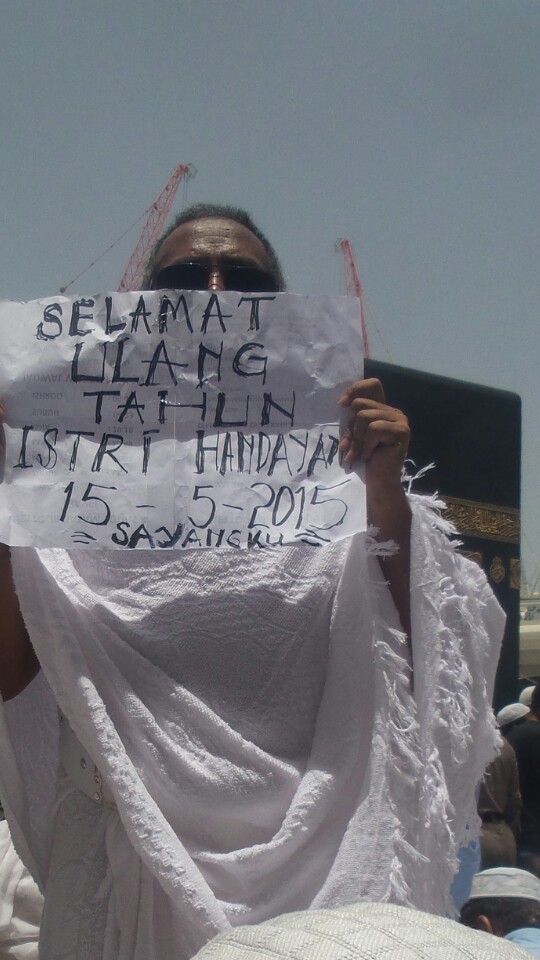 SELAMAT
ULANG
TAHUN
ISTRI HANDAYAN
15 - 5 - 2015
= SAYANGKU =